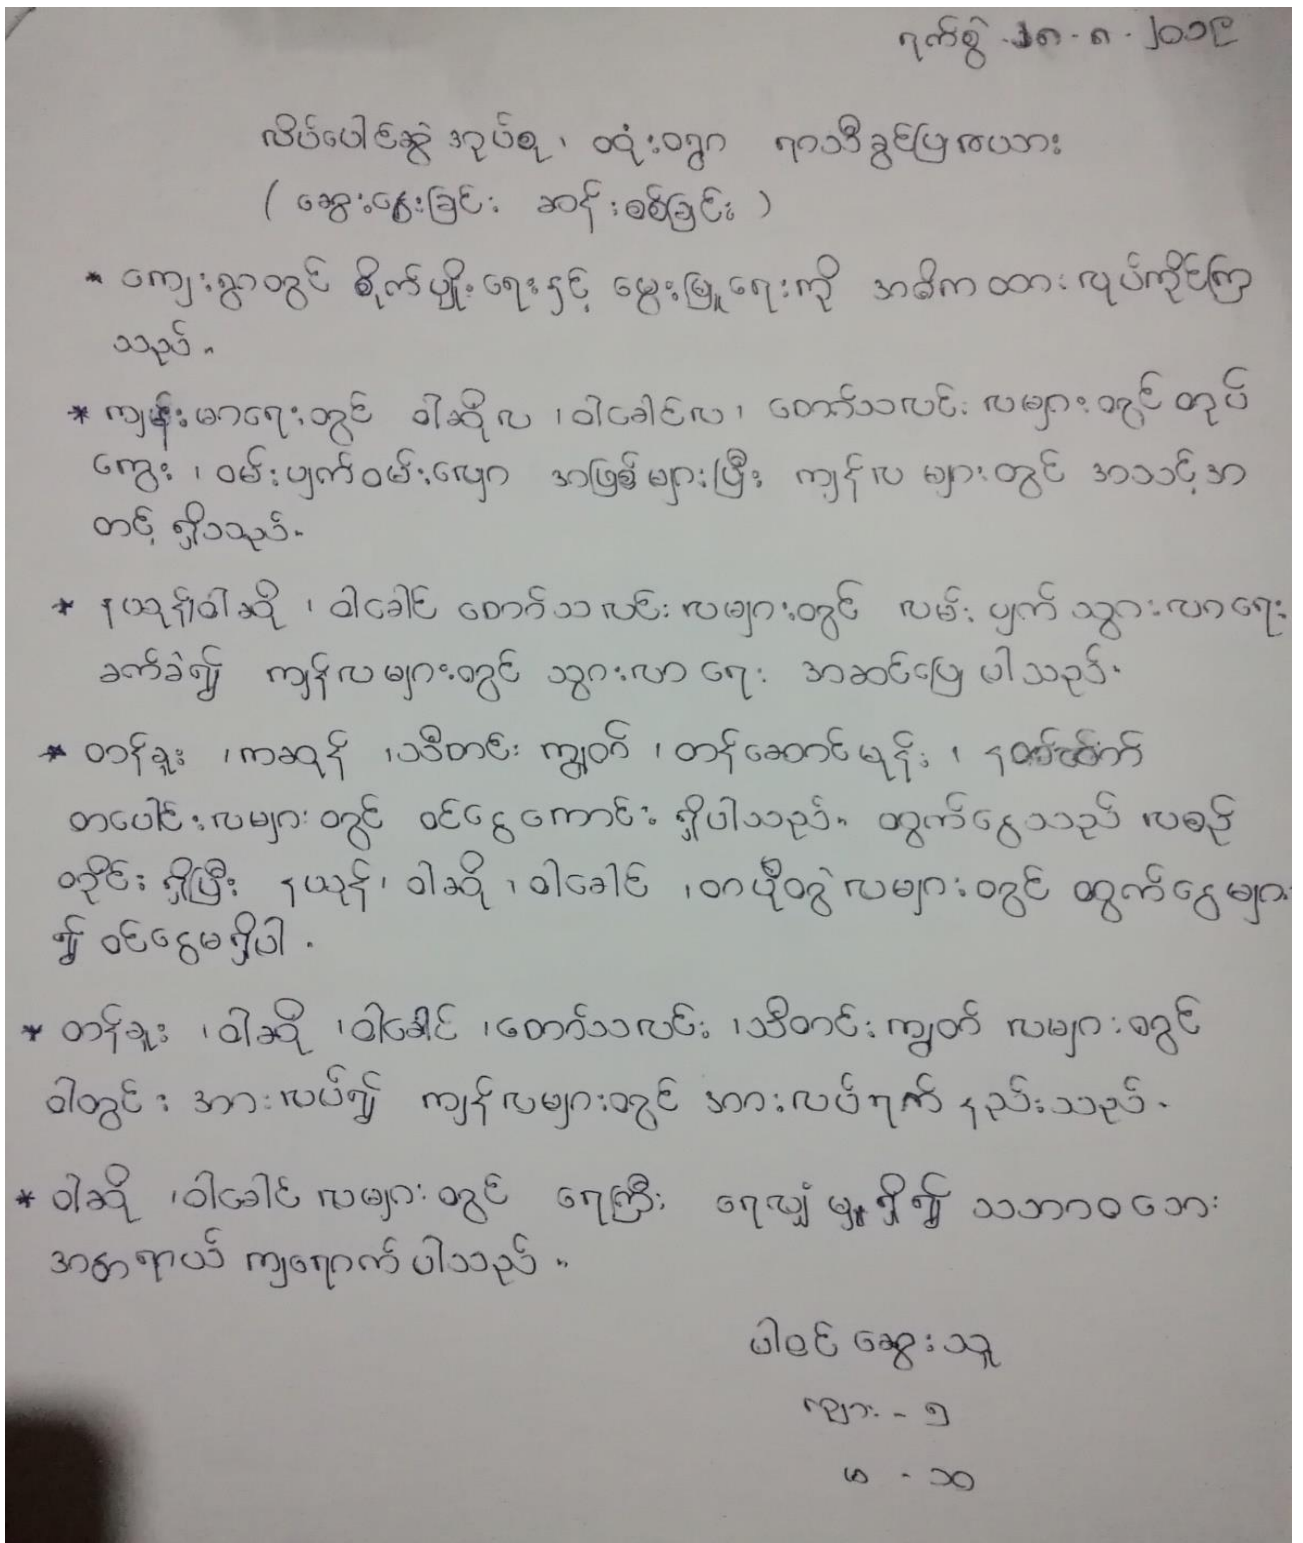 ရက်စွဲ - ၂၈ - ၈ - ၂၀၁၉
လိပ်ပေါင်ဆွဲ အုပ်စု၊ ထုံးဝရွာ ရာသီခွင်ပြဇယား
( ဆွေးနွေးခြင်း ဆန်းစစ်ခြင်း )
* ကျေးရွာတွင် စိုက်ပျိုးရေးနှင့် မွေးမြူရေးကို အဓိကထားလုပ်ကိုင်ကြ
သည်။
* ကျန်းမာရေးတွင် ဝါဆိုလ၊ ဝါခေါင်လ၊ တော်သလင်းလများတွင် တုပ်
ကွေး၊ ဝမ်းပျက်ဝမ်းလျော အဖြစ်များပြီး ကျန်လများတွင် အသင့်အ
တင့် ရှိသည်။
* နယုန်၊ ဝါဆို၊ ဝါခေါင် တော်သလင်းလများတွင် လမ်းပျက် သွားလာရေး
ခက်ခဲ၍ ကျန်လများတွင် သွားလာရေး အဆင်ပြေပါသည်။
* တန်ခူး၊ ကဆုန်၊ သီတင်းကျွတ်၊ တန်ဆောင်မုန်း၊ နတ်တော်
တပေါင်းလများတွင် ဝင်ငွေကောင်း ရှိပါသည်။ ထွက်ငွေသည် လစဉ်
တိုင်းရှိပြီး နယုန်၊ ဝါဆို၊ ဝါခေါင်၊ တပို့တွဲလများတွင် ထွက်ငွေများ
၍ ဝင်ငွေမရှိပါ။
* တန်ခူး၊ ဝါဆို၊ ဝါခေါင်၊ တော်သလင်း၊ သီတင်းကျွတ် လများတွင်
ဝါတွင်း အားလပ်၍ ကျန်လများတွင် အားလပ်ရက် နည်းသည်။
* ဝါဆို၊ ဝါခေါင်လများတွင် ရေကြီး ရေလျှံမှုရှိ၍ သဘာဝဘေး
အန္တရာယ် ကျရောက်ပါသည်။
ပါဝင်ဆွေးသူ
ကျား - ၅
မ - ၁၁